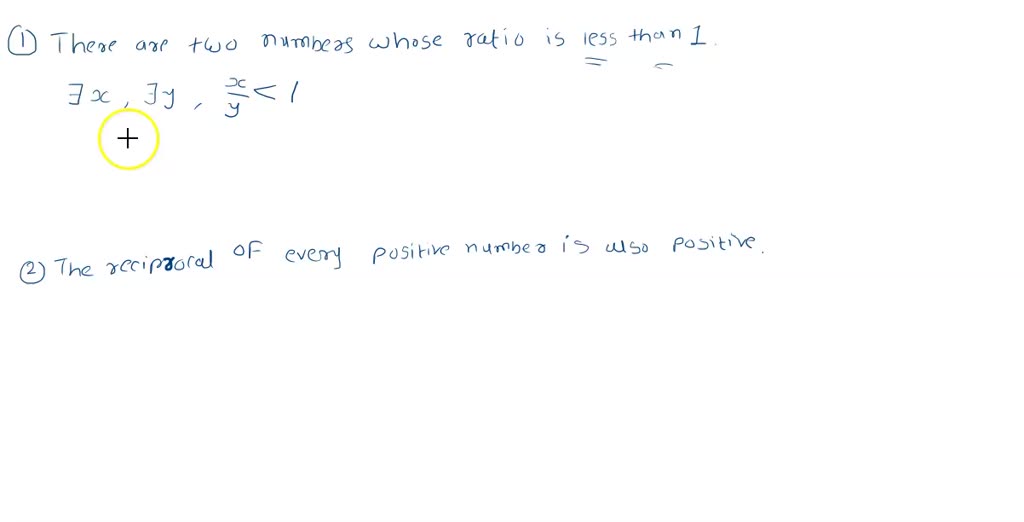 ① There are two numbers whose ratio is less than 1.
∃x, ∃y, x/y < 1
② The reciprocal OF every positive number is also positive.